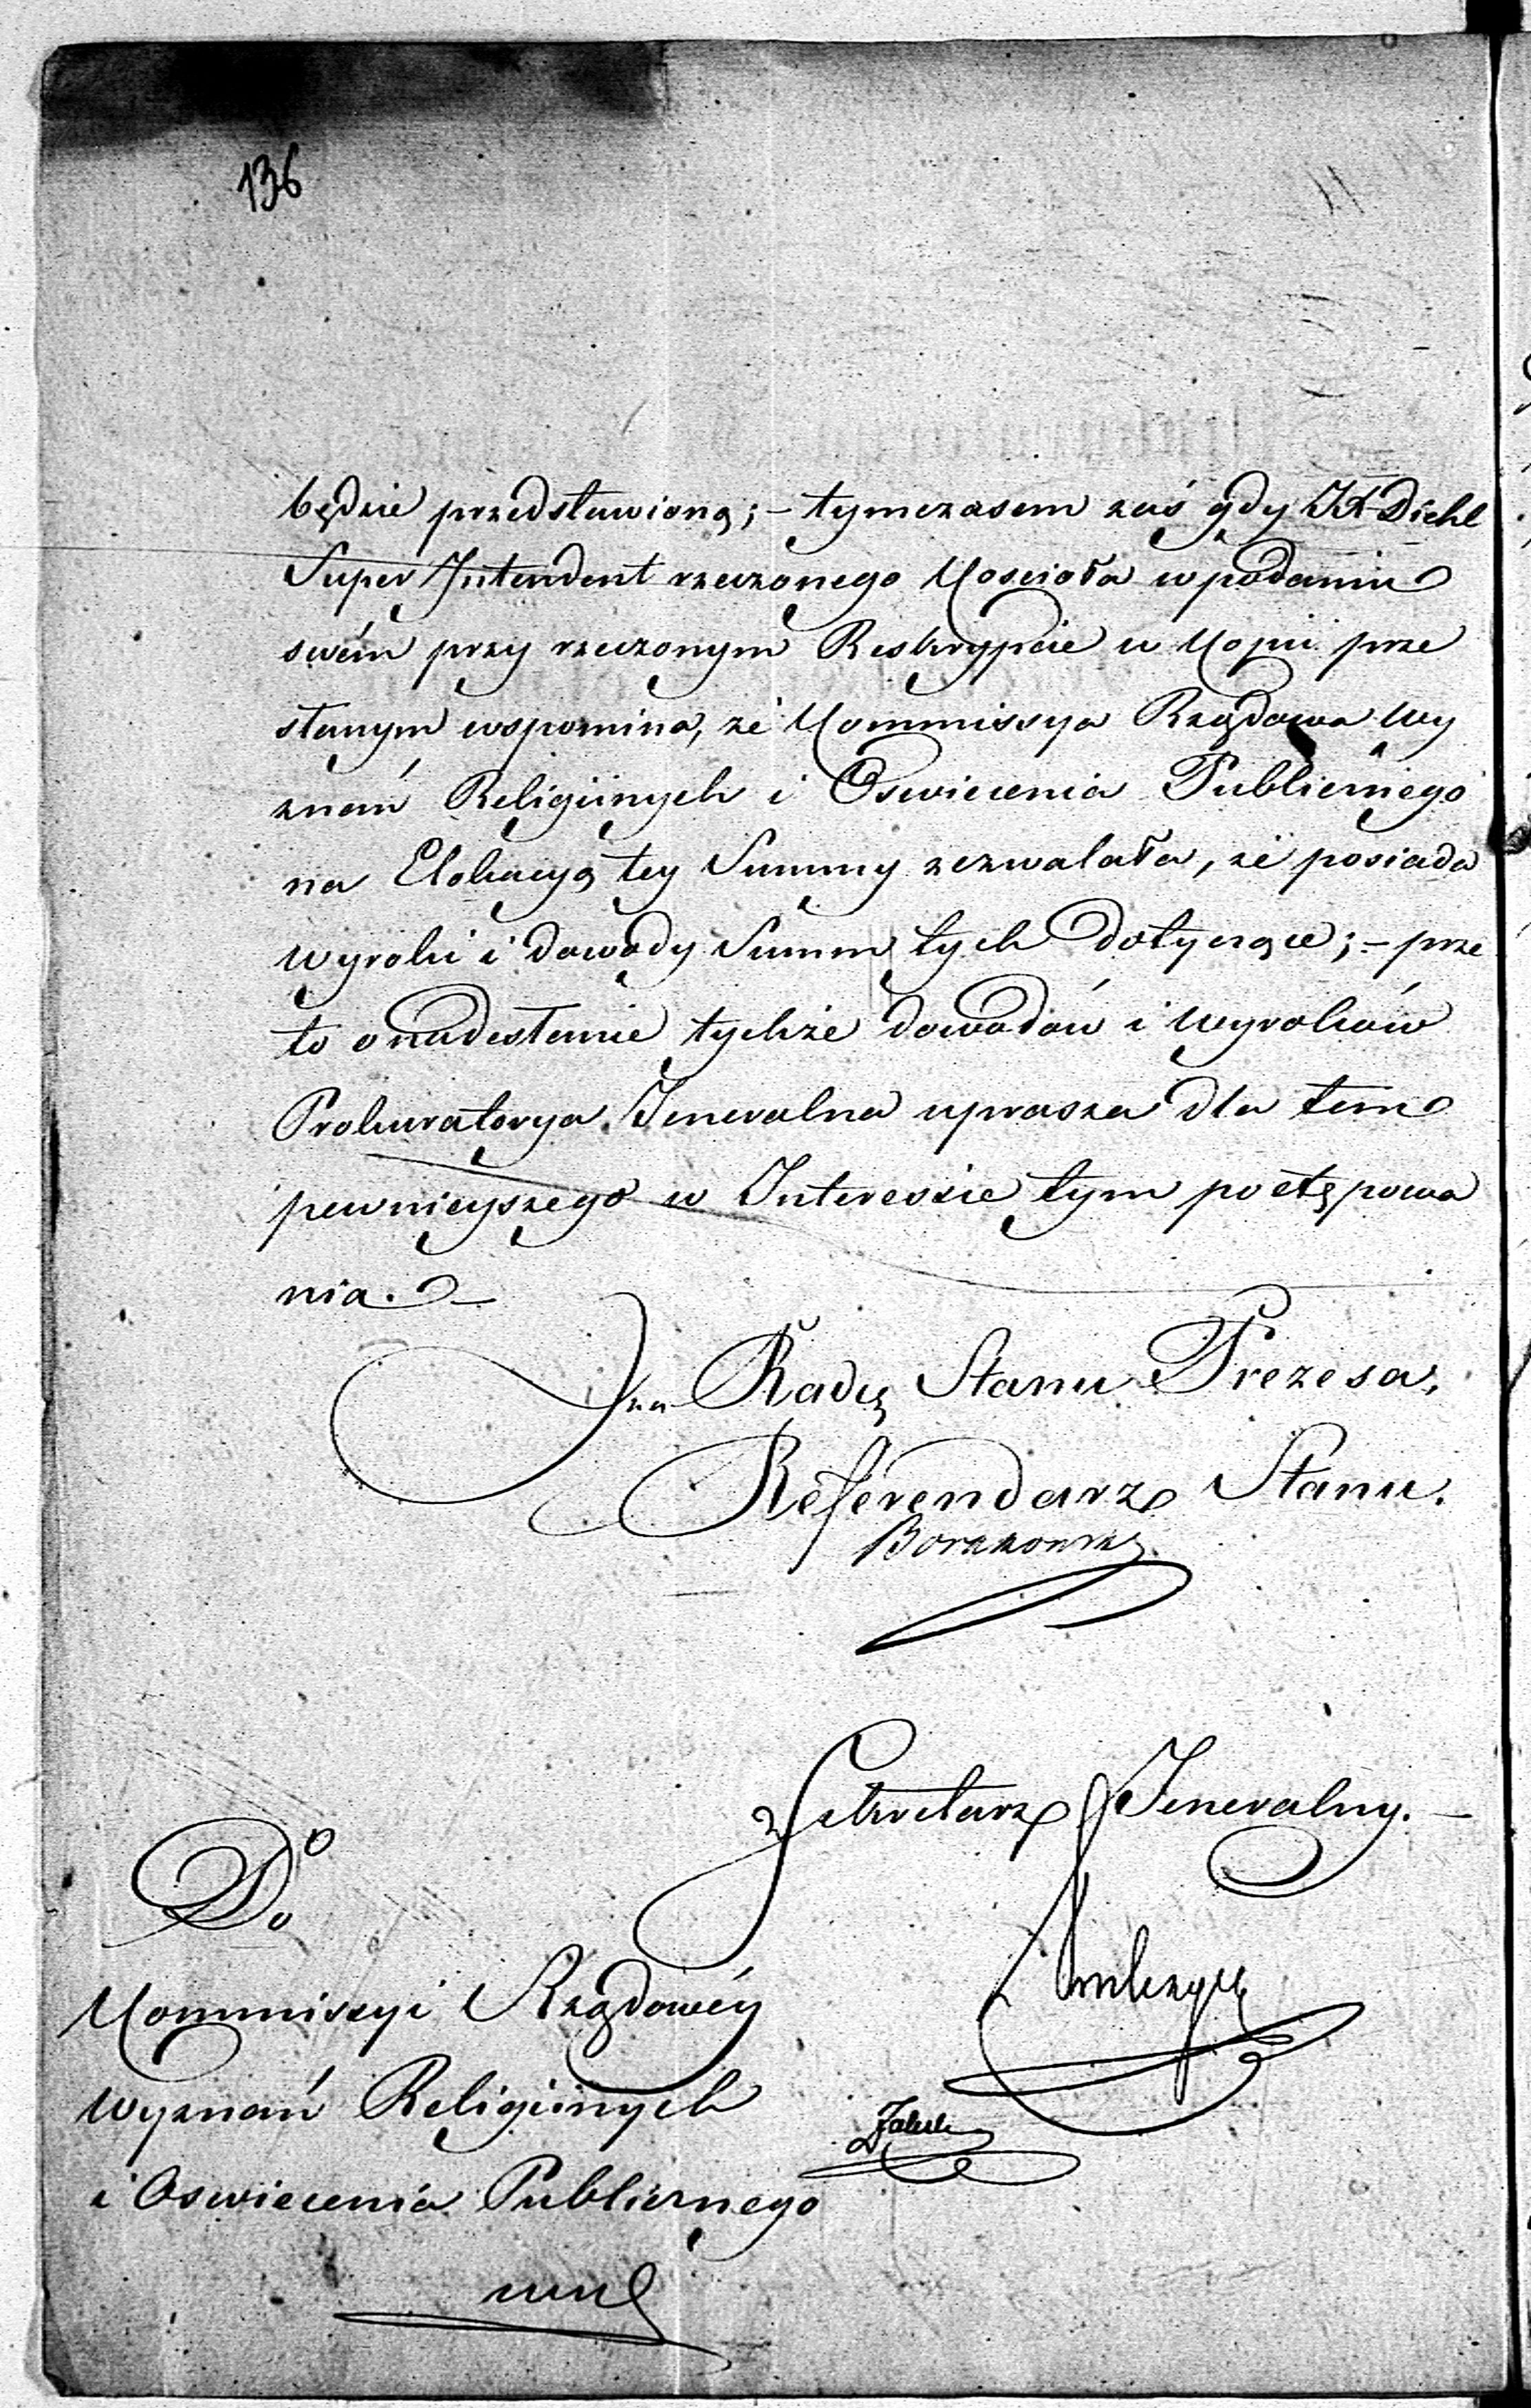 136
będzie przedstawioną; – tymczasem zaś gdy JX Diehl
Super Intendent rzeczonego Kościoła w podaniu
swém przy rzeczonym Reskrypcie w Kopii prze
słanym wspomina, że Kommissya Rządowa Wy
znań Religiinych i Oswiecenia Publicznego
na Elokacyą tey Summy zezwalała, że posiada
wyroki i dowody Summ tych dotyczące; – prze
to o nadesłanie tychże dowodów i wyroków
Prokuratorya Jeneralna uprasza dla tem
pewnieyszego w Interessie tym postępowa
nia. –
Radcę Stanu Prezesa,
Referendarz Stanu.
Borakowski
Sekretarz Jeneralny. –
Do
Kommissyi Rządowéy
Wyznań Religiinych
i Oswiecenia Publicznego